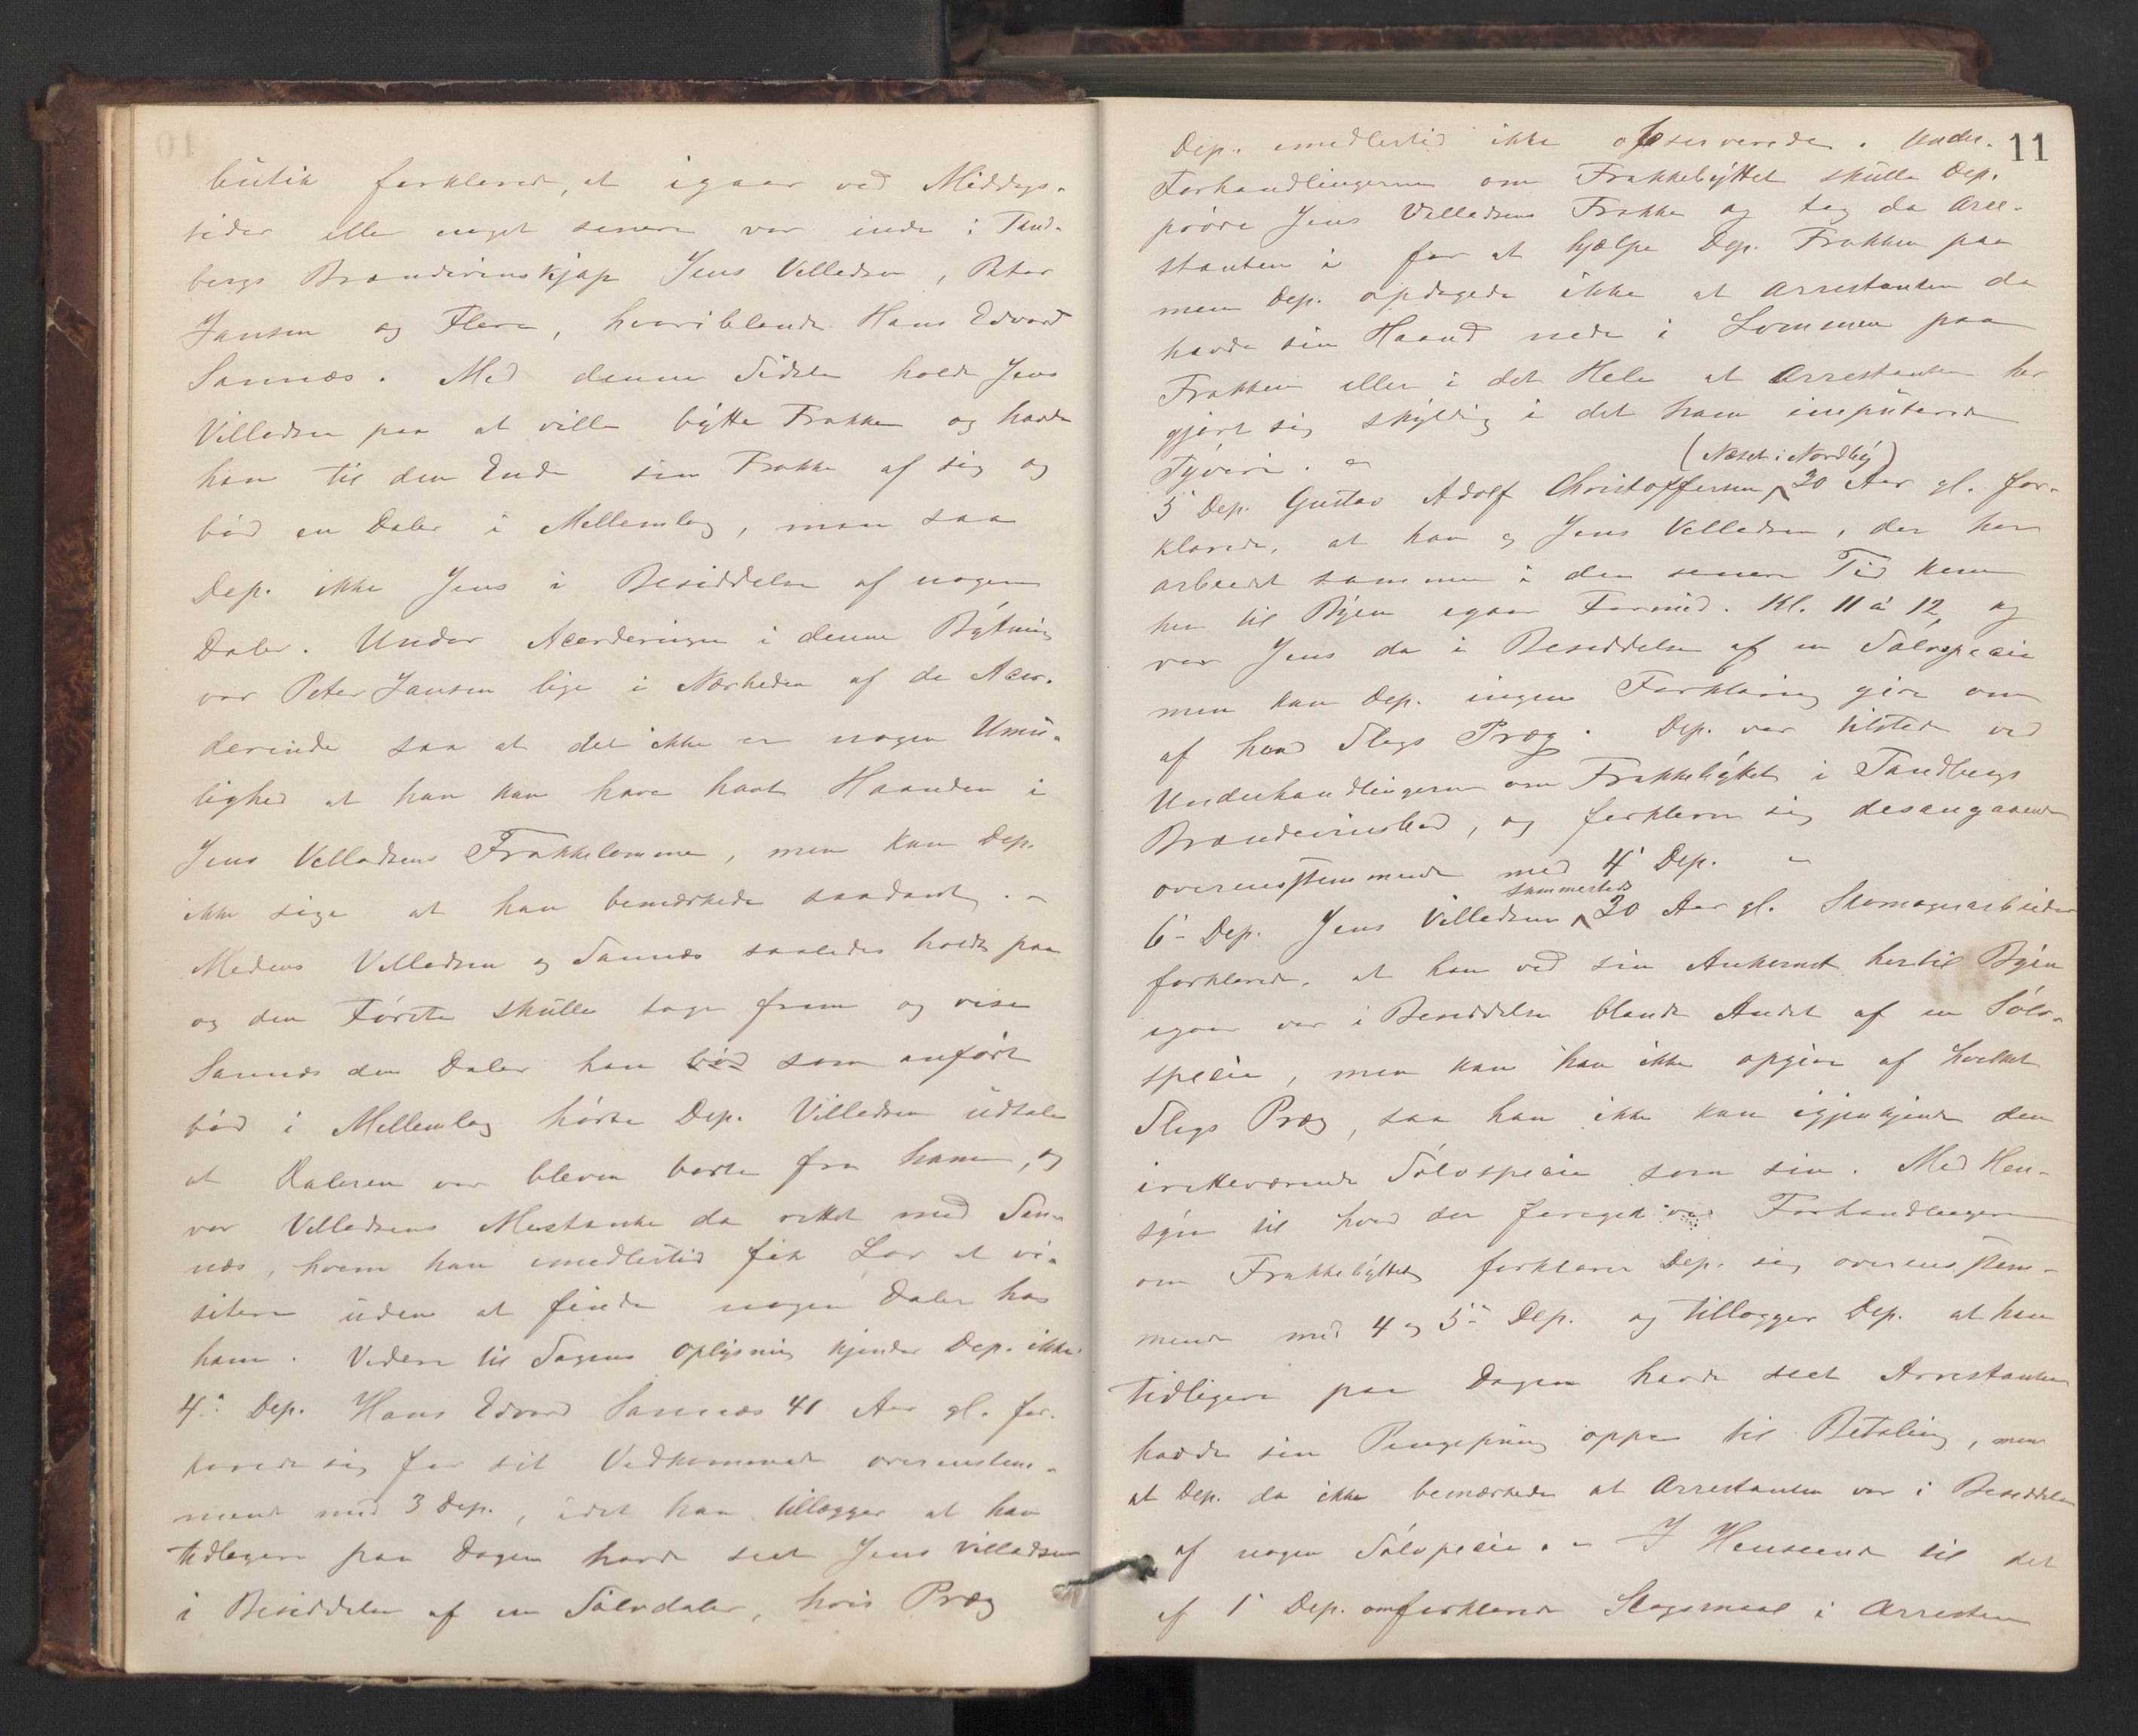 butik forklarede, at igaar ved Middags-
tider eller noget senere var inde i Tand-
bergs Brændeviinskjøp Jens Villadsen, Peter
Jansen og Flere, hvoriblandt Hans Edvard
Sannæs. Med denne Sidste holdt Jens
Villadsen paa at ville bytte Frakke og havde
han til den Ende sin Frakke af sig og
bød en Daler i Mellemlag, men saa
Dep. ikke Jens i Besiddelse af nogen
Daler. Under Accorderingen i denne Bytning
var Peter Jansen lige i Nærheden af de Accor-
derende saa at det ikke er nogen Umu-
lighed at han kan have havt Haanden i
Jens Villadsens Frakkelomme, men kan Dep.
ikke sige at han bemærkede saadant. -
Medens Villadsen og Sannæs saaledes holdt paa
og den Første skulde tage frem og vise
Sannæs den Daler han bød som anført
bød i Mellemlag hørte Dep. Villadsen udtale
at Daleren var bleven borte fra ham, og
var Villadsens Mistanke da rettet mod San-
næs, hvem han imedlertid fik Lov at vi-
sitere uden at finde nogen Daler hos
ham. Videre til Sagens Oplysning kjender Dep. ikke.
4de Dep. Hans Edvard Sannæs 41 Aar gl. for-
klarede sig for sit Vedkommende overensstem-
mende med 3 Dep., idet han tillægger at han
tidligere paa Dagen havde seet Jens Villadsen
i Besiddelse af en Sølvdaler, hvis Præg
11
Dep. imedlertid ikke observerede. Under
Forhandlingerne om Frakkebyttet skulde Dep.
prøve Jens Villadsens Frakke og tog da Arre-
stanten i for at hjælpe Dep. Frakken paa
men Dep. opdagede ikke at Arrestanten da
havde sin Haand nede i Lommen paa
Frakken eller i det Hele at Arrestanten har
gjort sig skyldig i det ham imputerede
Tyveri. -
(Næset i Nordby)
5 Dep. Gustav Adolf Christoffersen 30 Aar gl. for-
klarede, at han og Jens Villadsen, der har
arbeidet sammen i den senere Tid kom
her til Byen igaar Formid. Kl. 11 à 12, og
var Jens da i Besiddelse af en Sølvspecie
men kan Dep. ingen Forklaring give om
af hvad Slags Præg. Dep. var tilstede ved
Underhandlingerne om Frakkebyttet i Tandbergs
Brændeviinsbod, og forklarer sig desangaaende
overensstemmende med 4de Dep. -
sammesteds
6- Dep. Jens Villadsen 20 Aar gl. Skomagerarbeider
forklarede, at han ved sin Ankomst hertil Byen
igaar var i Besiddelse blandt Andet af en Sølv-
specie, men kan han ikke opgive af hvilket
Slags Præg, saa han ikke kan igjenkjende den
iretteværende Sølvspecie som sin. Med Hen-
syn til hvad der foregik ved Forhandlingen
om Frakkebyttet forklarer Dep. sig overensstem-
mende med 4 og 5- Dep. og tillægger Dep. at han
tidligere paa Dagen havde seet Arrestanten
havde sin Pengepung oppe til Betaling, men
at Dep. da ikke bemærkede at Arrestanten var i Besiddelse
af nogen Sølvspecie. - I Henseende til det
af 1 Dep. omforklarede Slagsmaal i Arresten